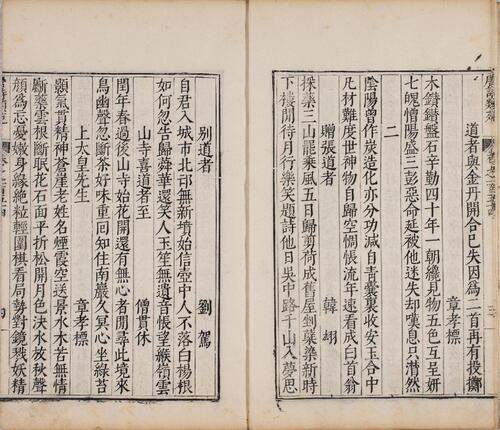 道者與金丹開合已失因爲二首再有投擲
章孝標
木鑚鑚盤石辛勤四十年一朝纔見物五色互呈妍
七魄憎陽盛三彭惡命延被他迷失却嘆息只潸然
二
陰陽曾作炭造化亦分功減自青囊裏收安玉合中
凡材難度世神物自歸空惆悵流年速看成白首翁
贈張道者
韓翃
採藥三山罷乘風五日歸剪荷成舊屋
染新時
下樓閒待月行樂笑題詩他日吳中路千山入夢思
别道者
劉駕
自君入城市北邙無新墳始信壺中人不落白楊根
如何忽告歸蕣華還笑人玉笙無遺音悵望緱嶺雲
山寺喜道者至
僧貫休
閏年春過後山寺始花開還有無心者閒尋此境來
鳥幽聲忽斷茶好味重回知住南巖久冥心坐綠苔
上太皇先生
章孝標
顥氣貫精神蒼崖老姓名煙霞空送景水木苦無情
斸藥雲根斷眠花石面平折松開月色決水放秋聲
顔爲忘憂嫩身緣絶粒輕圍棋看局勢對鏡戮妖精